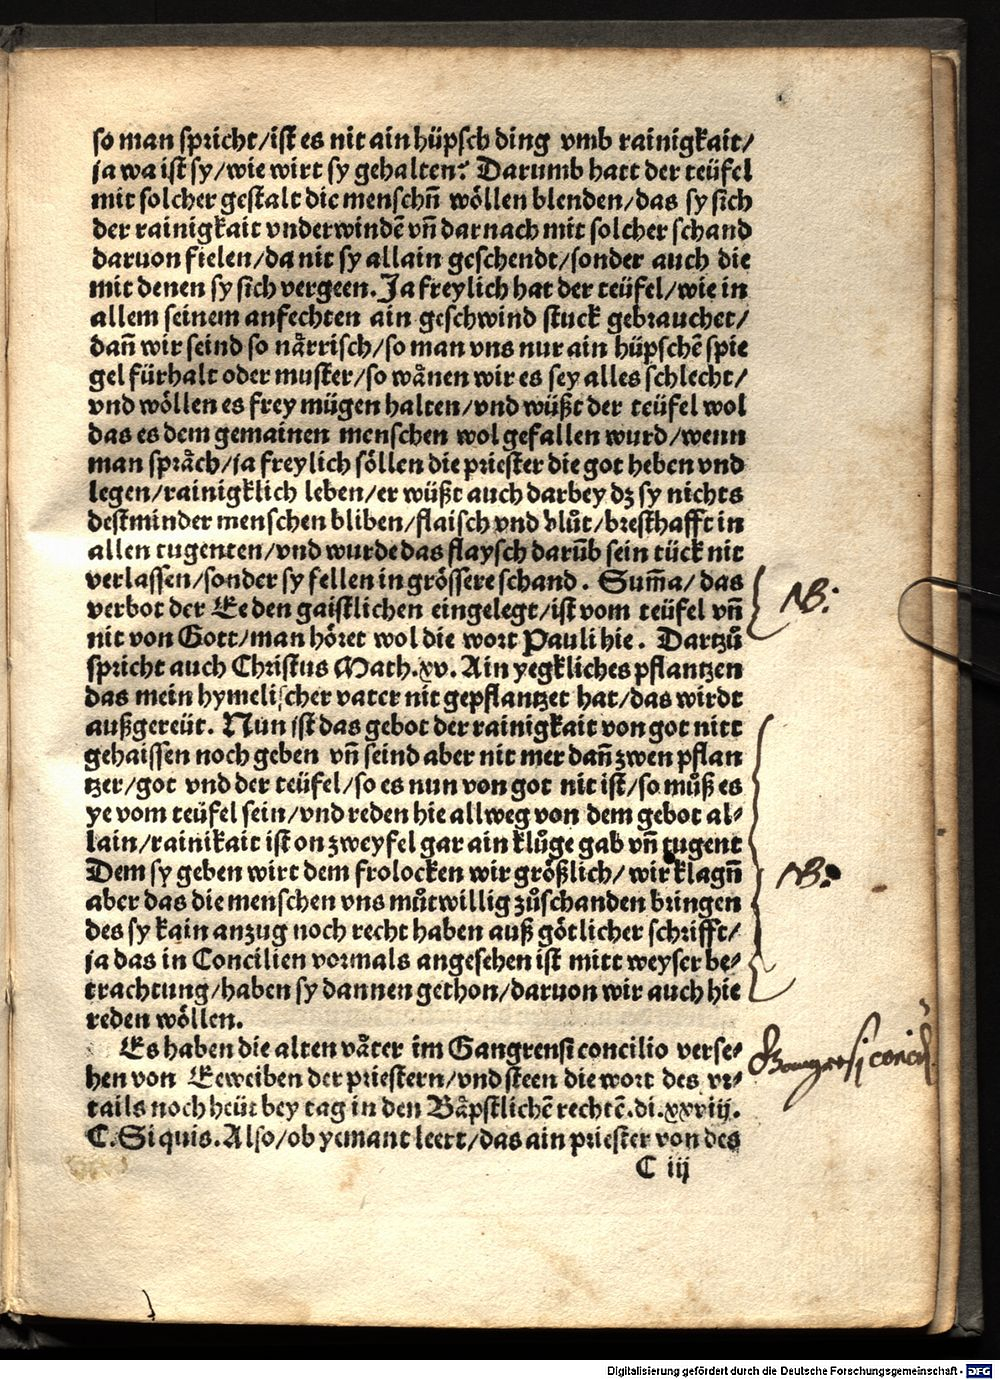 so man spricht/ist es nit ain hüpsch ding vmb rainigkait/
ja wa ist sy/wie wirt sy gehalten? Darumb hatt der teüfel
mit solcher gestalt die menschñ wöllen blenden/das sy sich
der rainigkait vnderwindẽ vñ darnach mit solcher schand
daruon fielen/da nit sy allain geschendt/sonder auch die
mit denen sy sich vergeen. Ja freylich hat der teüfel/wie in
allem seinem anfechten ain geschwind stuck gebrauchet/
dañ wir seind so nårrisch/so man vns nur ain hüpschẽ spie
gel fürhalt oder muster/so wånen wir es sey alles schlecht/
vnd wöllen es frey mügen halten/vnd wüßt der teüfel wol
das es dem gemainen menschen wol gefallen wurd/wenn
man språch/ja freylich söllen die priester die got heben vnd
legen/rainigklich leben/er wüßt auch darbey dz sy nichts
destminder menschen bliben/flaisch vnd blůt/bresthafft in
allen tugenten/vnd wurde das flaysch darũb sein tück nit
verlassen/sonder sy fellen in grössere schand. Sum̃a/das
verbot der Ee den gaistlichen eingelegt/ist vom teüfel vñ
nit von Gott/man höret wol die wort Pauli hie. Dartzů
spricht auch Christus Math.xv. Ain yegkliches pflantzen
das mein hymelischer vater nit gepflantzet hat/das wirdt
außgereüt. Nun ist das gebot der rainigkait von got nitt
gehaissen noch geben vñ seind aber nit mer dañ zwen pflan
tzer/got vnd der teüfel/so es nun von got nit ist/so můß es
ye vom teüfel sein/vnd reden hie allweg von dem gebot al⸗
lain/rainikait ist on zweyfel gar ain klůge gab vñ tugent
Dem sy geben wirt dem frolocken wir größlich/wir klagñ
aber das die menschen vns můtwillig zůschanden bringen
des sy kain anzug noch recht haben auß götlicher schrifft/
ja das in Concilien vormals angesehen ist mitt weyser be⸗
trachtung/haben sy dannen gethon/daruon wir auch hie
reden wöllen.
Es haben die alten våter im Gangrensi concilio verse⸗
hen von Eeweiben der priestern/vnd steen die wort des vr⸗
tails noch heüt bey tag in den Båpstlichẽ rechtẽ.di.xxviij.
C. Si quis. Also/ob yemant leert/das ain priester von des
C iij
NB:
NB:
Gangrensi concil.
Digitalisierung gefördert durch die Deutsche Forschungsgemeinschaft - DFG